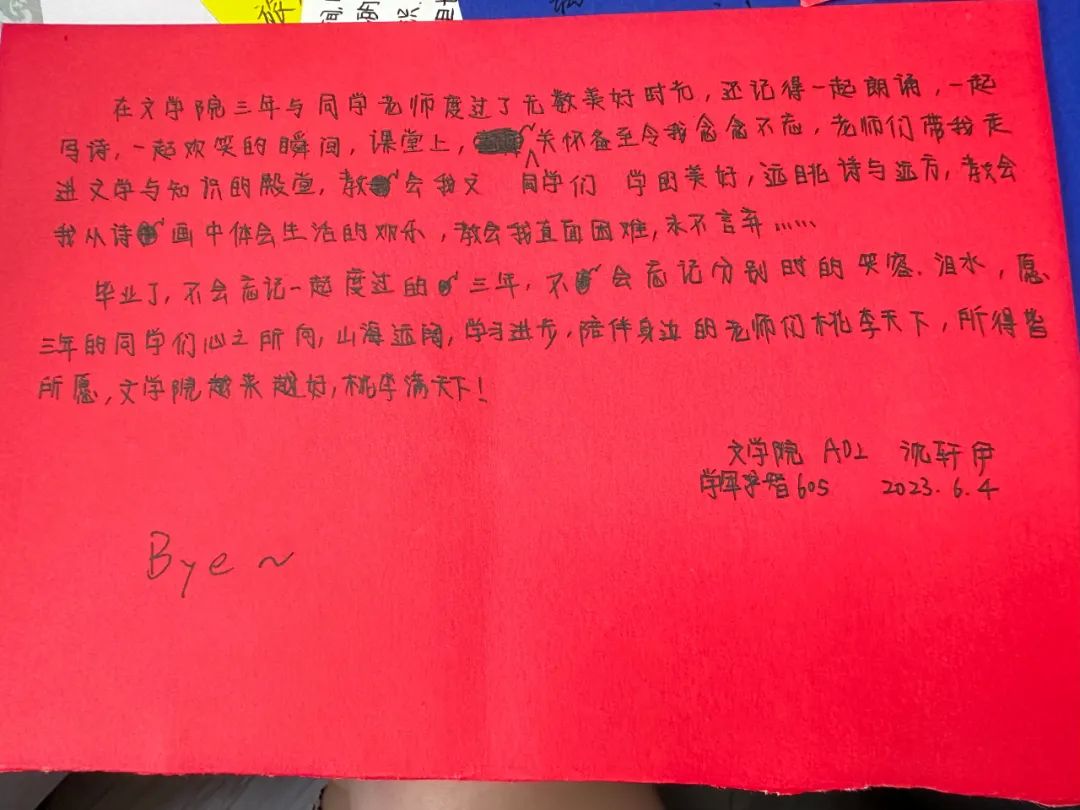 在文学院三年与同学老师度过了无数美好时光，还记得一起朗诵，一起
写诗，一起欢笑的瞬间，课堂上，同学们关怀备至令我念念不忘，老师们带我走
进文学与知识的殿堂，教会我文学的美好，远眺诗与远方，教会
我从诗画中体会生活的欢乐，教会我直面困难，永不言弃……
毕业了，不会忘记一起度过的三年，不会忘记分别时的笑容、泪水，愿
三年的同学们心之所向，山海远阔，学习进步，陪伴身边的老师们桃李天下，所得皆
所愿，文学院越来越好，桃李满天下！
文学院 A02 沈轩伊
学军 605 2023.6.4
Bye~